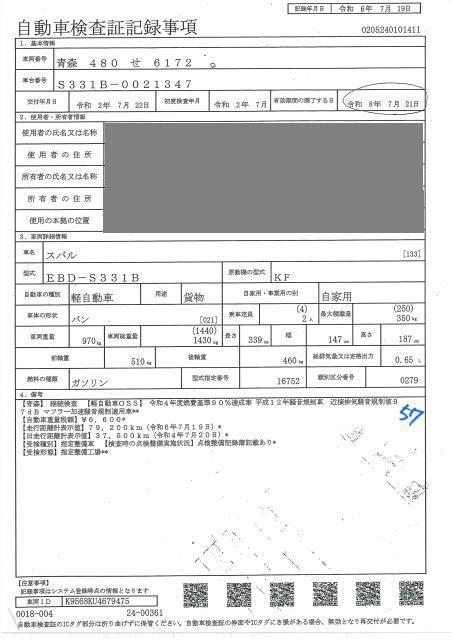 記録年月日 令和 6年 7月 19日
自動車検査証記録事項
0205240101411
1. 基本情報
車両番号 青森 480 せ 6172
車台番号 S331B-0021347
交付年月日 令和 2年 7月 22日 初度検査年月 令和 2年 7月 有効期間の満了する日 令和 8年 7月 21日
2. 使用者・所有者情報
使用者の氏名又は名称
使用者の住所
所有者の氏名又は名称
所有者の住所
使用の本拠の位置
3. 車両詳細情報
車名 スバル [133]
型式 EBD-S331B 原動機の型式 KF
自動車の種別 軽自動車 用途 貨物 自家用・事業用の別 自家用
車体の形状 バン [021] 乗車定員 (4) 2人 最大積載量 (250) 350kg
車両重量 970kg 車両総重量 (1440) 1430kg 長さ 339cm 幅 147cm 高さ 187cm
前軸重 510kg 後軸重 460kg 総排気量又は定格出力 0.65 L
燃料の種類 ガソリン 型式指定番号 16752 類別区分番号 0279
4. 備考
【青森】 継続検査 【軽自動車OSS】 令和4年度燃費基準90%達成車 平成12年騒音規制車 近接排気騒音規制値9
7dB マフラー加速騒音規制適用車**
【自動車重量税額】 ¥6,600*
【走行距離計表示値】 79,200km (令和6年7月19日)*
【旧走行距離計表示値】 37,500km (令和4年7月20日)*
【受検種別】 指定整備車 【検査時の点検整備実施状況】 点検整備記録簿記載あり*
【受検形態】 指定整備工場**
57
【注意事項】
記録事項はシステム登録時点の情報となります
車両ID K9568KU4679475
0018-004 24-00361
自動車検査証のICタグ部分は折り曲げずに保管ください。自動車検査証の券面やICタグにき損がある場合、無効となり再交付が必要です。